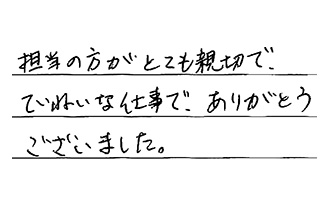 担当の方がとても親切で、
ていねいな仕事で、ありがとう
ございました。